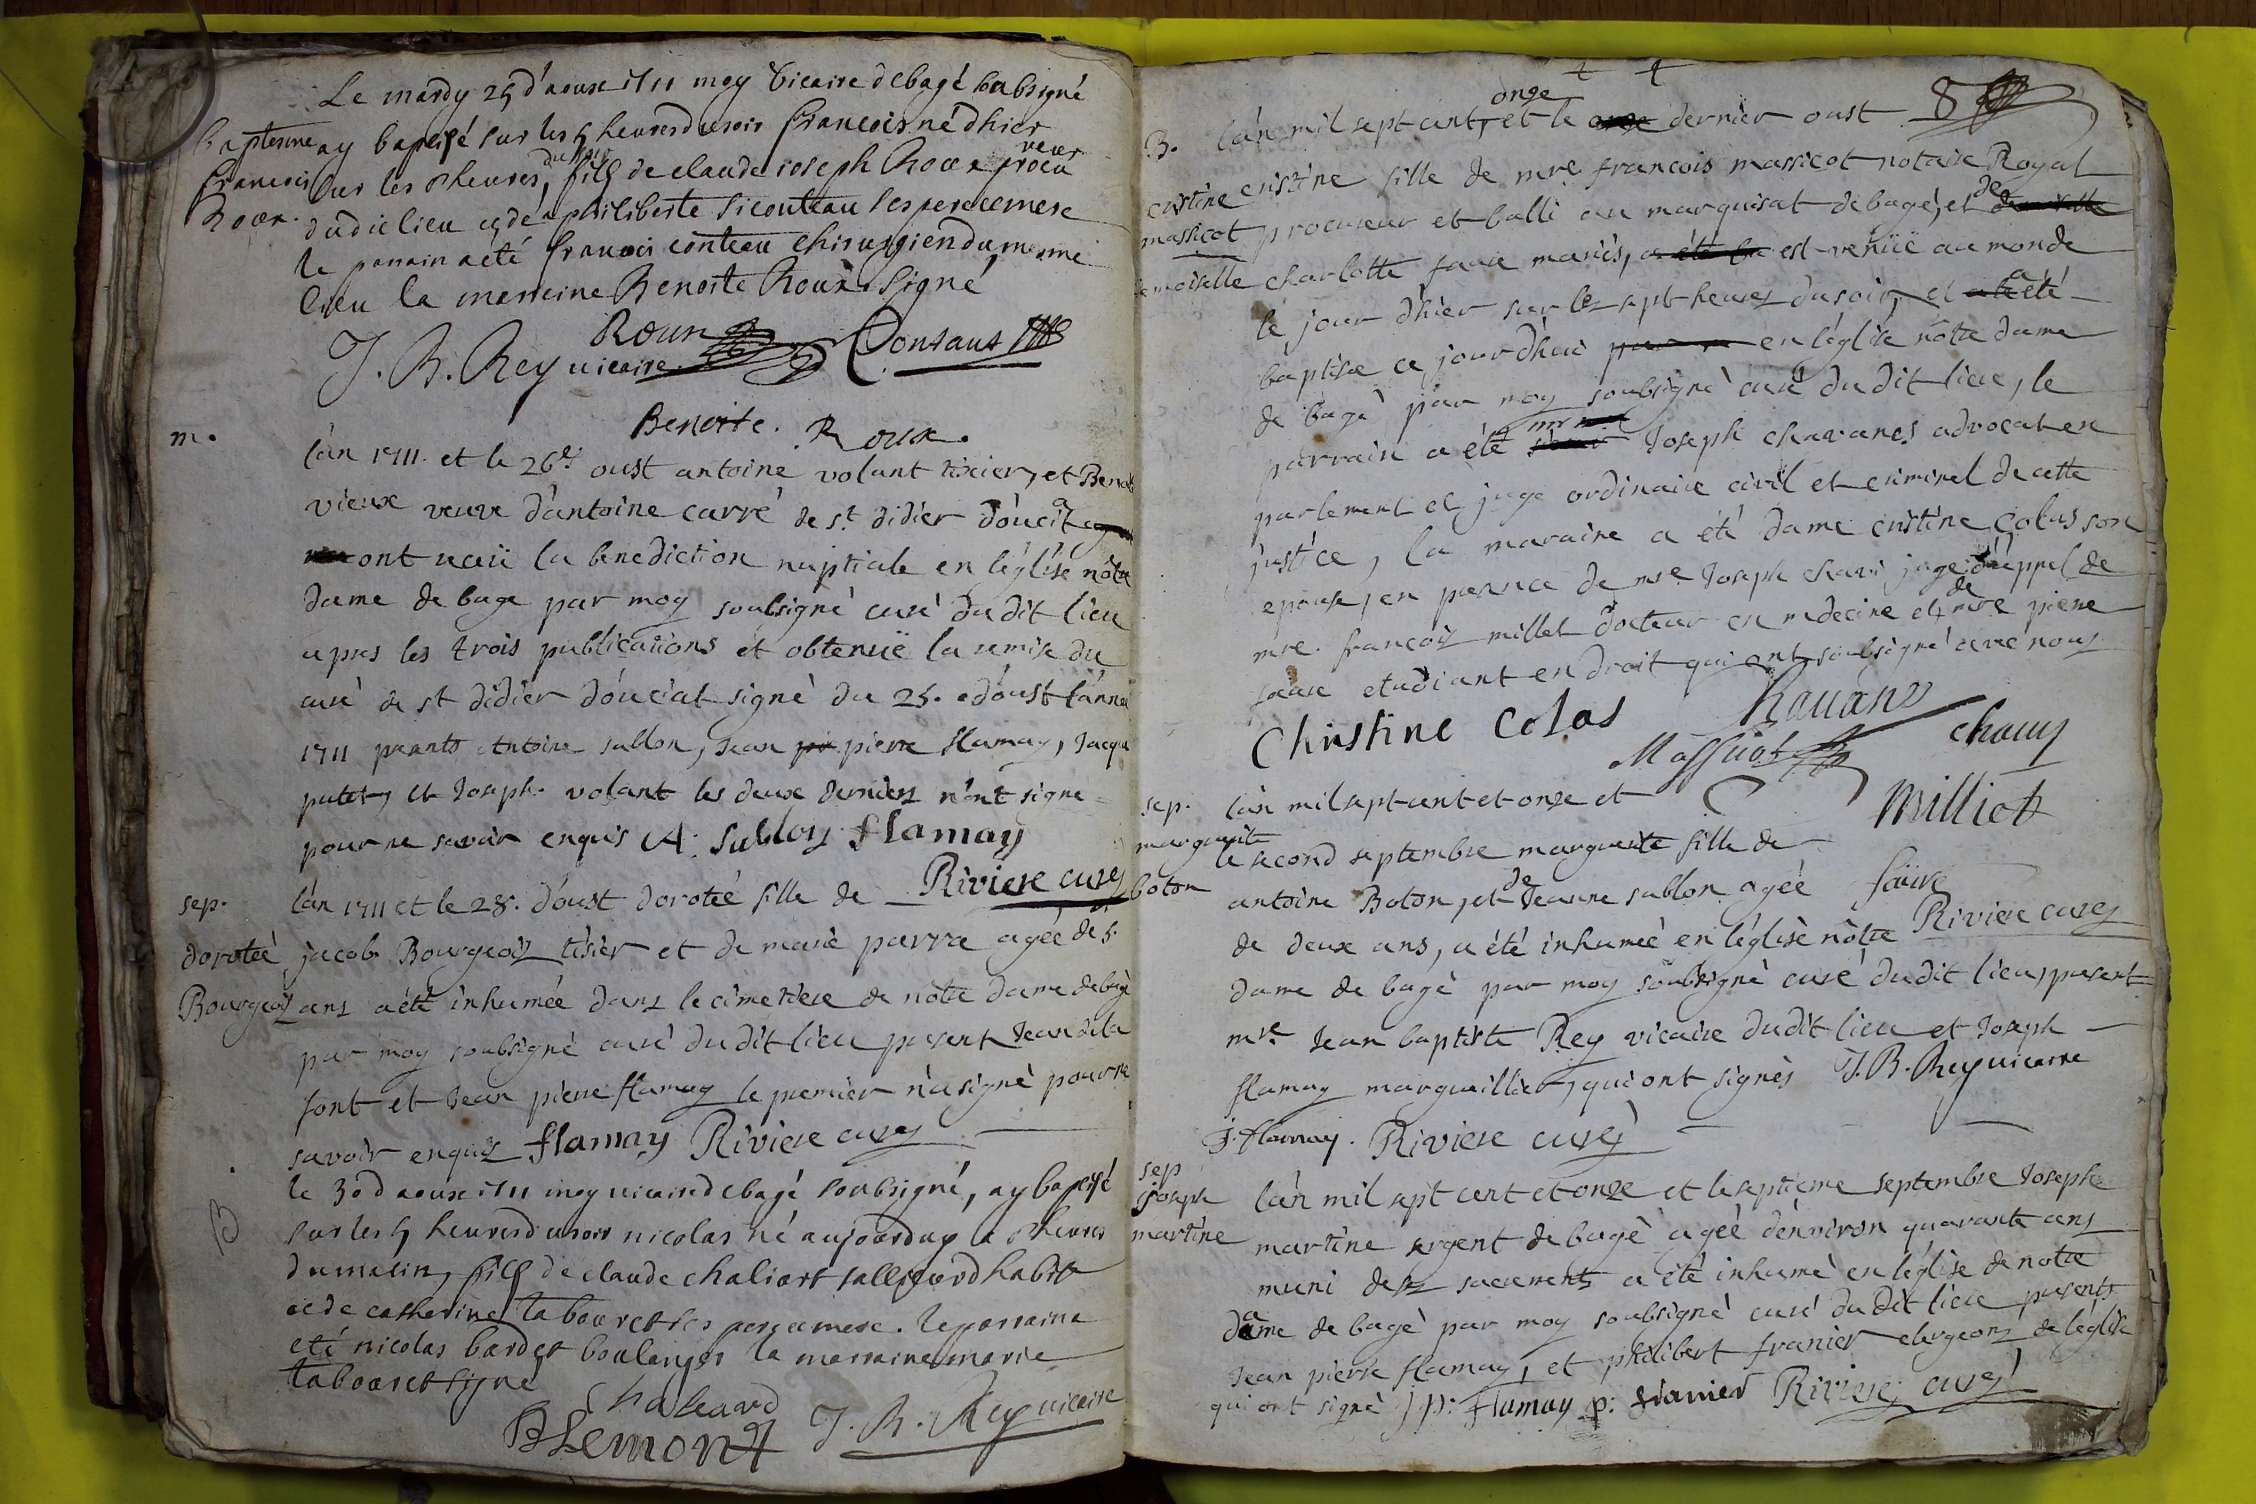 Le mardy 25 d'aoust 1711 moy vicaire de bagé soubsigné
Baptesme ay baptisé sur les 5 heures du soir francois né dhier
francois sur les 8 heures du soir, fils de claude ioseph Roux procu reur
Roux. dudit lieu et de philiberte siconteau ses pere et mere
le parrain a été francois conteau chirurgien du mesme
lieu la marraine Benoite Roux. signé
Roux Contaut
J. B. Rey vicaire
Benoite. Roux.
m. l'an 1711. et le 26e. oust antoine volant tixier, et Benoite
vieux veuve d'antoine carré de st didier d'ouciat
ont receü la benediction nuptiale en l'église nôtre
dame de bage par moy soubsigné curé du dit lieu
apres les trois publications et obtenuë la remise du
curé de st didier d'ouciat signé du 25. d'oust l'année
1711 presents Antoine sublon, Jean pierre flamay, Jacque
putet, et Joseph volant les deux derniers n'ont signe
pour ne savoir enquis A. Subloy flamay
Riviere curé
sep. l'an 1711 et le 28. d'oust dorotée fille de
dorotée jacob Bourgeois tisier et de marie parra agée de 5.
Bourgeois ans a été inhumée dans le cimetiere de nôtre dame de bagé
par moy soubsigné curé du dit lieu present Jean de la
font et Jean pierre flamay le premier n'a signé pour ne
savoir enquis flamay Riviere curé
B le 30 d'aoust 1711 moy vicaire de bagé soubsigné, ay baptisé
sur les 5 heures du soir nicolas né aujourduy a 8 heures
du matin, fils de claude chaliart habit
et de catherine tabouret ses pere et mere. le parrain a
eté nicolas bardet boulanger la marraine marie
tabouret signé
Chaliard J. B. Rey vicaire
BLemont
8
B. l'an mil sept cent, onze et le dernier oust
cristine cristine fille de mre. francois massicot notaire Royal
massicot procureur et balli au marquisat de bagé, et de
demoiselle charlotte faure mariés, est venüe au monde
le jour d'hier sur les sept heures du soir, et a été
baptisée ce jourd'hui en l'église nôtre dame
de bagé par moy soubsigné curé du dit lieu, le
parrain a été mr Joseph chavanes advocat en
parlement et juge ordinaire civil et criminel de cette
justice, la maraine a été dame cristine Colas son
epouse, en presence de mre Joseph chavi juge d'appel de
mre. francois millet docteur en medecine et de mre piere
faure etudiant en droit qui ont soubsigné avec nous
Christine Colas Chavanes
Massicot chauy
Milliet
sep. l'an mil sept cent et onze et
marguerite le second septembre marguerite fille de
boton antoine Boton, et de Jeanne sublon agée faure
de deux ans, a été inhumeé en l'église nôtre Riviere curé
dame de bagé par moy soubsigné curé du dit lieu, present
mre. Jean baptiste Rey vicaire du dit lieu et Joseph
flamay marguillier, qui ont signés J. B. Rey vicaire
J. flamay. Riviere curé
sep
joseph l'an mil sept cent et onze et le septieme septembre Joseph
martine martine sergent de bagé agée d'environ quarante ans
muni des sacrements a été inhumé en l'église de notre
dame de bagé par moy soubsigné curé du dit lieu presents
Jean pierre flamay, et philibert franier clergeons de l'église
qui ont signé j p: flamay p: franier Riviere, curé